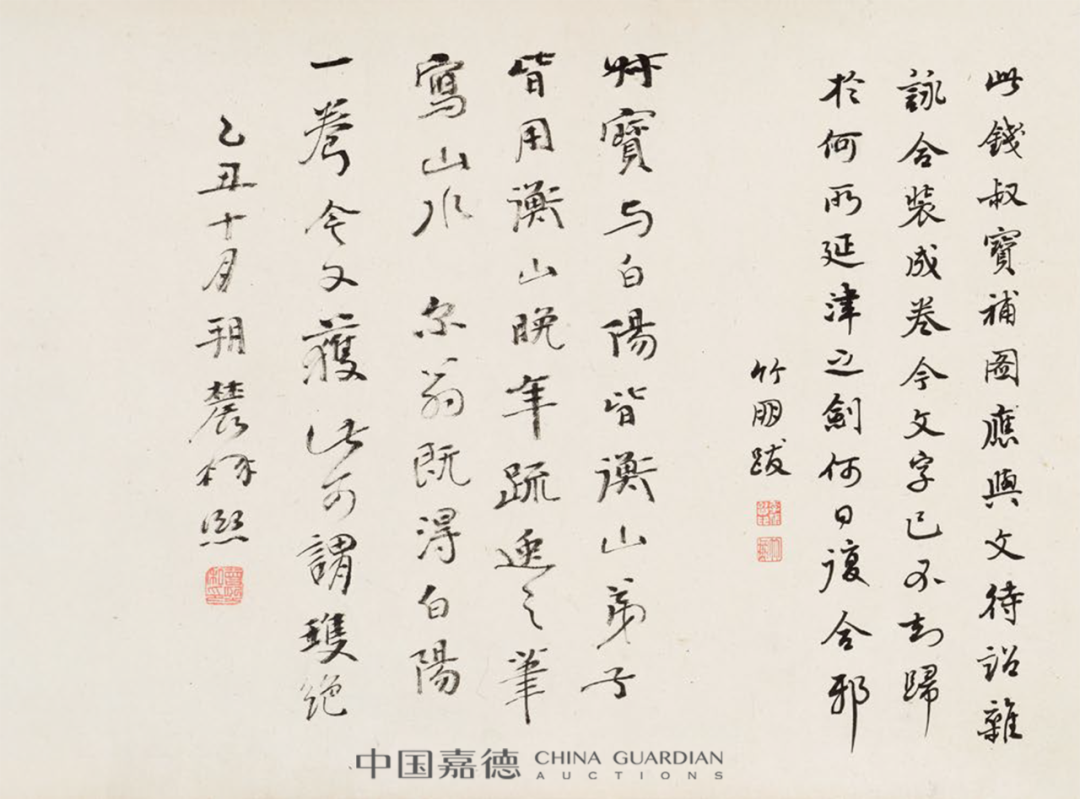 此錢叔寶補圖應與文待詔雜
詠合裝成卷今文字已不知歸
於何所延津之劍何日復合邪
竹朋跋
叔寶與白陽皆衡山弟子
皆用衡山晚年疏逸之筆
寫山水 尔翁既得白陽
一卷今又獲此可謂雙絕
乙丑十月朔農柯熙
中国嘉德 CHINA GUARDIAN
AUCTIONS